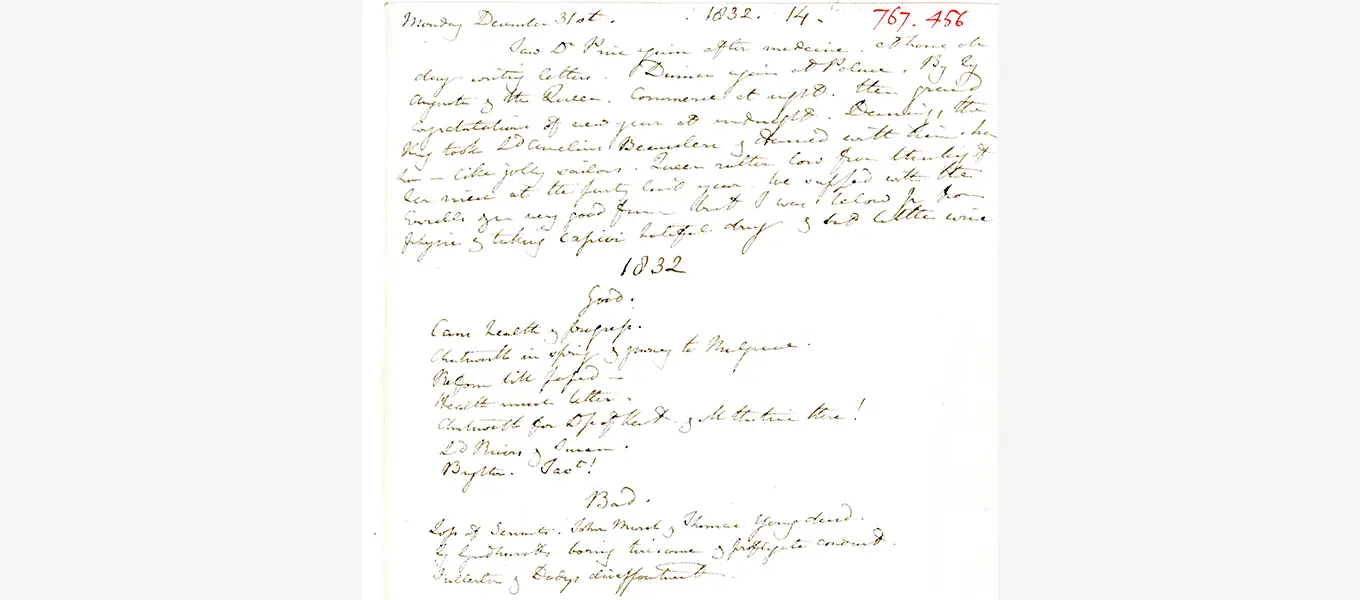 Monday December 31st. 1832. 14. 767. 456
Saw Dr again after medicine. At home all
day writing letters. Dinner again at Palace. By Ly
Augusta & the Queen. Commerce at night. then grand
congratulations of new year at midnight. Dancing, the
King took Ld Amelius Beauclerc & danced with him.
him – like jolly sailors. Queen rather low from thinking of
her niece at the party last year. We supped with the
Errolls & in very good fun but I was below par from
physic & taking capivi hateful drug & had little wine
1832
Good.
Cam health & progress.
Chatsworth in spring & journey to Mulgrave.
Reform bill passed –
Health much better.
Chatsworth for Dss of Kent. & all the time there!
Ld Rivers & Susan.
Brighton. Tact!
Bad.
Loss of Servants. John & Thomas Young dead.
Ly Lyndhursts boring tiresome & profligate conduct.
Fullerton & Dodys disappointment.